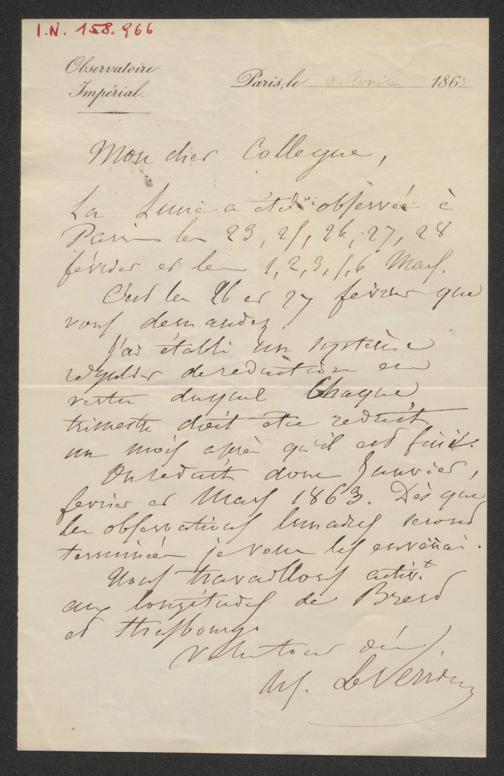 I.N. 158.966
Observatoire
Impérial.
Paris, le 9 Avril 1863
Mon cher Collegue,
La Lune a été observée à
Paris les 23, 25, 26, 27, 28
février et les 1, 2, 3, 5, 6 Mars.
C'est les 26 et 27 février que
vous demandez.
J'ai établi un système
régulier de réduction en
vertu duquel Chaque
trimestre doit etre réduit
un mois après qu'il est fini.
On réduit donc Janvier,
fevrier et Mars 1863. Dès que
les observations lunaires seront
terminées je vous les enverrai.
Nous travaillons activt
aux longitudes de Brest
et Strasbourg.
Votre tout dév
LeVerrier